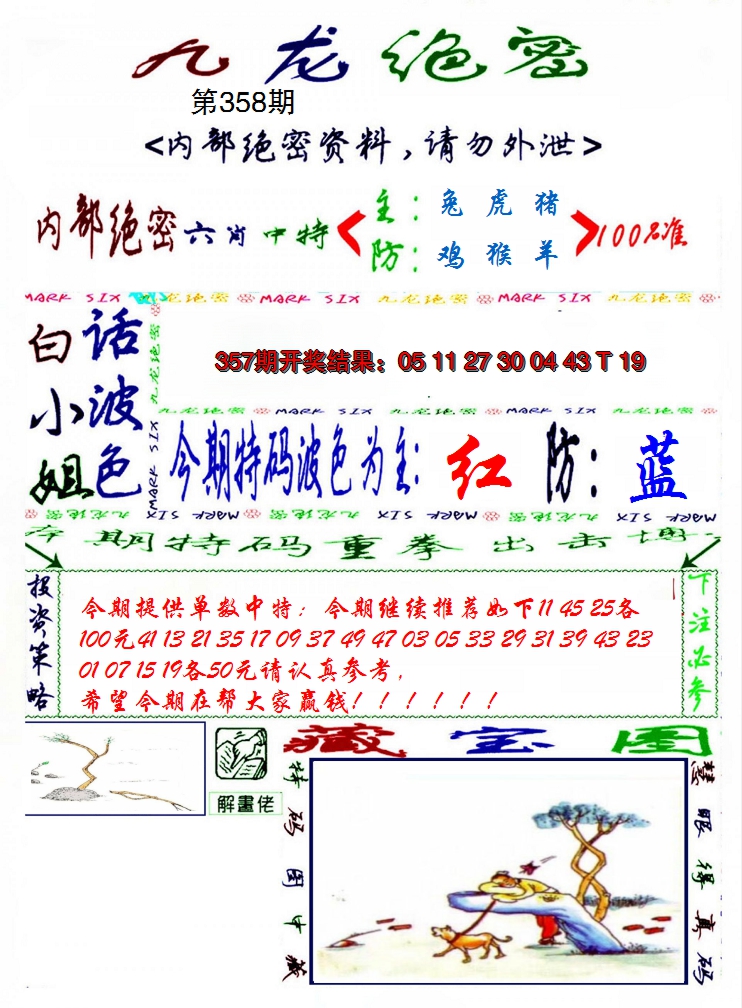 九龙绝密
第358期
<内部绝密资料，请勿外泄>
内部绝密六肖中特
主：兔 虎 猪
防：鸡 猴 羊
100%准
MARK SIX 九龙绝密 MARK SIX 九龙绝密 MARK SIX 九龙绝密
白小姐
话波色
九龙绝密
MARK SIX
357期开奖结果：05 11 27 30 04 43 T 19
九龙绝密 MARK SIX 九龙绝密 MARK SIX 九龙绝密
今期特码波色为主：红 防：蓝
九龙绝密 MARK SIX 九龙绝密 MARK SIX 九龙绝密 MARK SIX
本期特码重拳出击博
投资策略
今期提供单数中特；今期继续推荐如下11 45 25各
100元41 13 21 35 17 09 37 49 47 03 05 33 29 31 39 43 23
01 07 15 19各50元请认真参考，
希望今期在帮大家赢钱！！！！！！
下注必参
解畫佬
藏宝图
特码图中藏
慧眼得真码